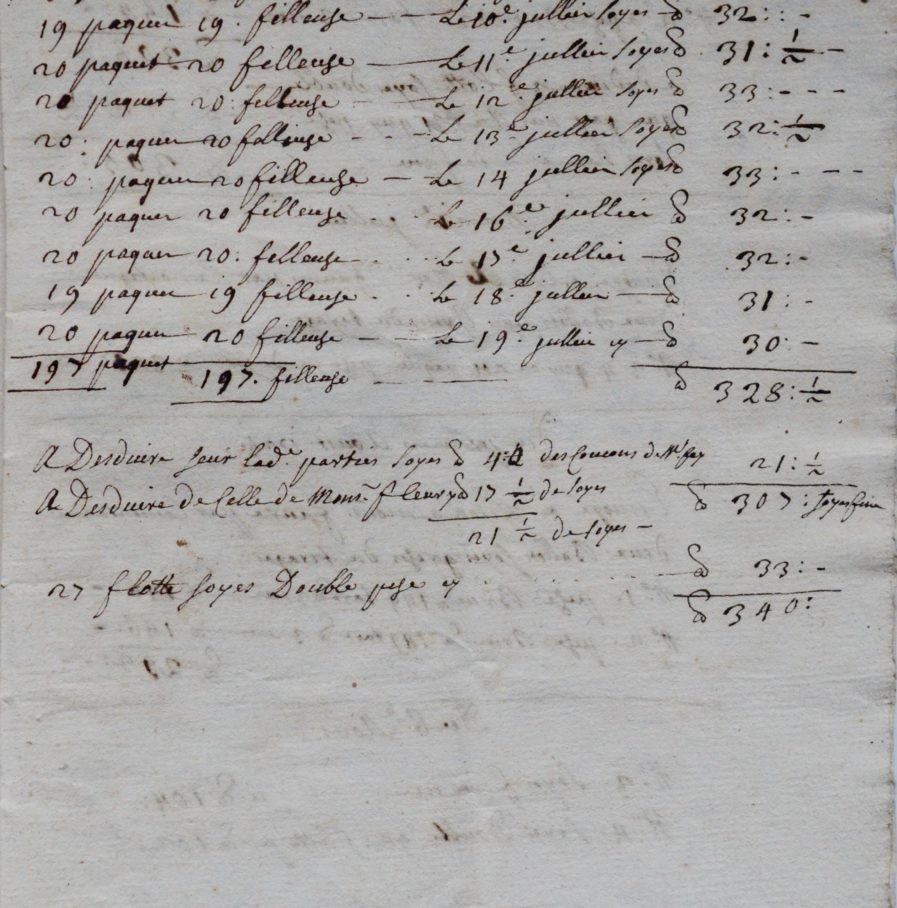 19 paquet 19. filleuse — — Le 10e jullier soyes ℔ 32: : -
20 paquet 20 filleuse — Le 11e jullier soyes ℔ 31: ½ -
20 paquet 20: filleuse — Le 12e jullier soyes ℔ 33: - - -
20: paquet 20 filleuse - - - Le 13e jullier soyes ℔ 32: ½
20: paquet 20 filleuse — Le 14 jullier soyes ℔ 33: - - -
20 paquet 20 filleuse Le 16e jullier ℔ 32: -
20 paquet 20: filleuse . . . Le 17e jullier — ℔ 32: -
19 paquet 19 filleuse . . . Le 18e jullier — ℔ 31: -
20 paquet 20 filleuse — — Le 19e jullier cy — ℔ 30: -
197 paquet 197. filleuse — — ℔ 328: ½
A Desduire seur lade parties soyes ℔ 4: des Coucons de Mr fay 21: ½
A Desduire de Celle de Monsr fleury ℔ 17 ½ de soyes ℔ 307: soyes fine
21 ½ de soyes —
27 flotte soyes Double pese cy . . . . . — ℔ 33: -
℔ 340: